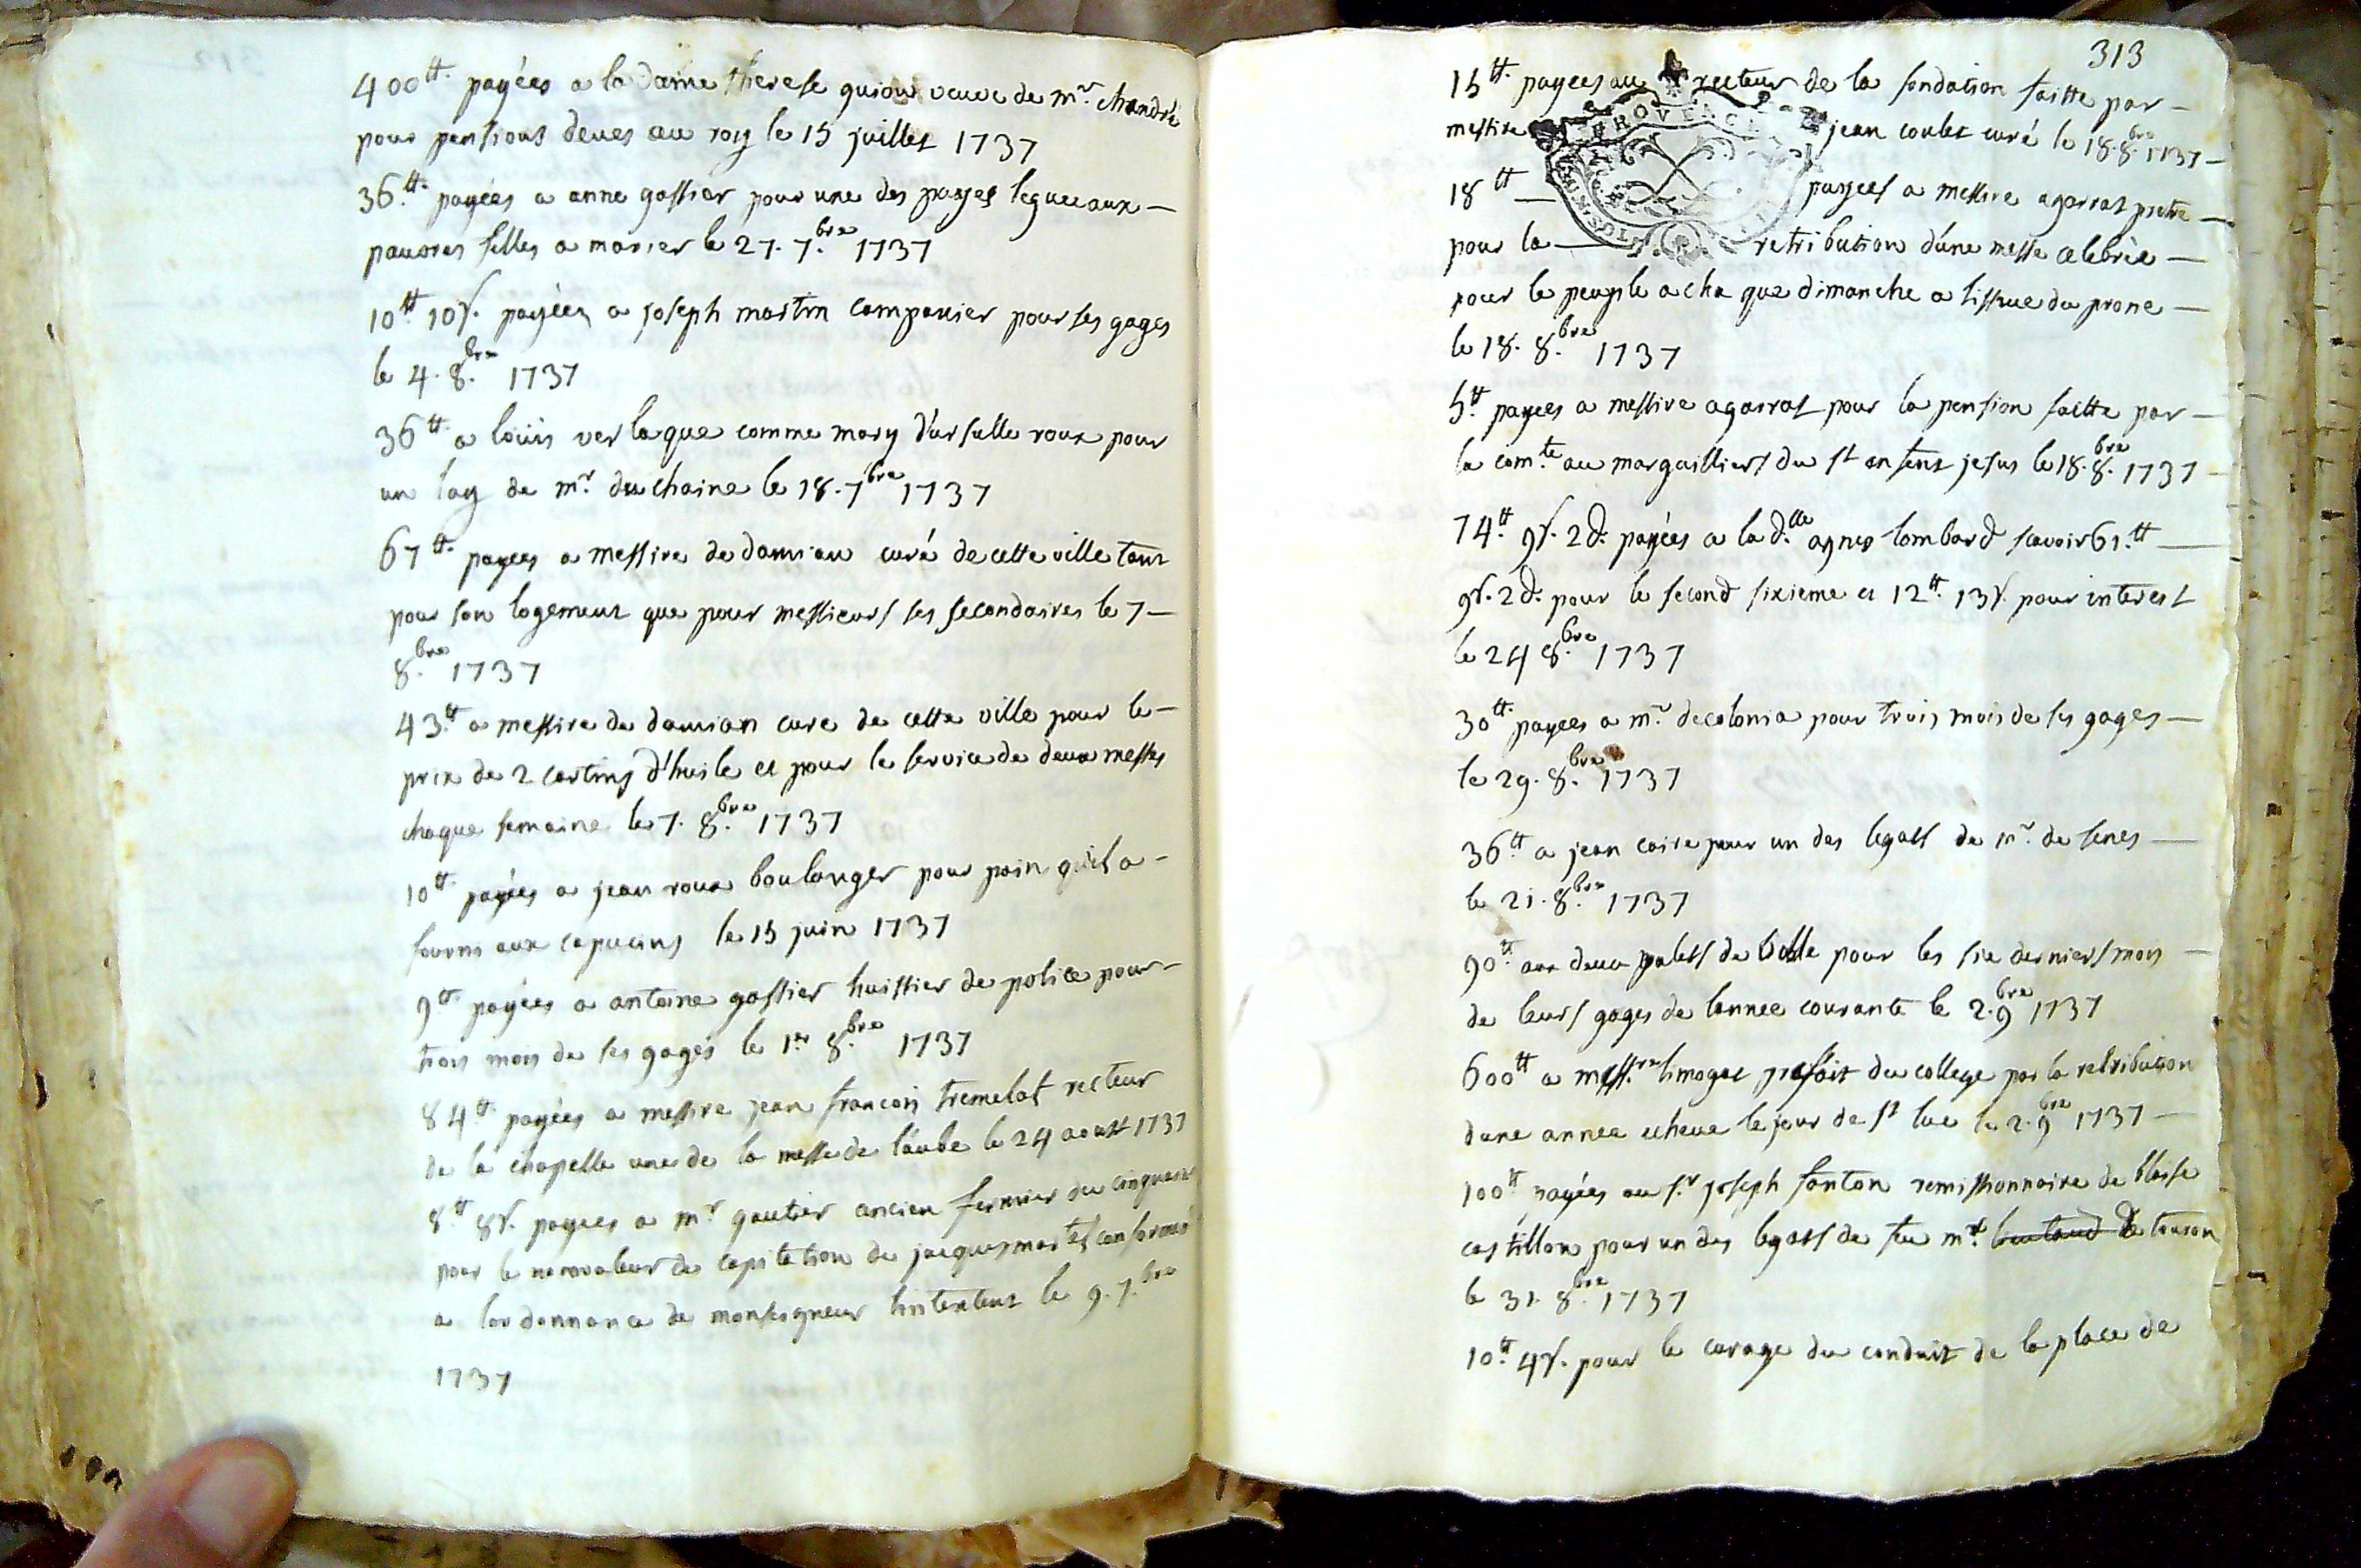 400tt. payées a la dame therese guion veuve de mr. chandre
pour pensions deues au roy le 15 juillet 1737
36.tt. payées a anne gassier pour une des payes leguee aux
pauvres filles a marier le 27. 7.bre 1737
10tt. 10s. payées a joseph martin campanier pour ses gages
le 4. 8.bre 1737
36tt. a loüis verlaque comme mary d'ursulle roux pour
un lag de mr. duchaine le 18. 7bre 1737
67tt. payees a messire de damian curé de cette ville tant
pour son logement que pour messieurs ses secondaires le 7
8.bre 1737
43.tt a messire de damian cure de cette ville pour le
prix de 2 cartins d'huile et pour le service de deux messes
chaque semaine le 7. 8.bre 1737
10tt. payées a jean roux boulanger pour pain quil a
fourni aux capucins le 15 juin 1737
9tt. payées a antoine gassier huissier de police pour
trois mois de ses gages le 1er 8.bre 1737
84tt. payées a messire jean francois tremelat recteur
de la chapelle de la messe de l'aube le 24 aoust 1737
8tt 8s. payees a mr gautier ancien fermier du cinquain
pour le nonvaleur de capitation de jacques martel conformé
a lordonnance de monseigneur lintentent le 9. 7.bre
1737
313
15tt. payees au recteur de la fondation faitte par
messire jean coulet curé le 18. 8.bre 1737
PROVENCE
18tt payees a messire agarrat pretre
pour la retribution d'une messe celebrée
pour le peuple a cha que dimanche a lissue du prone
le 18. 8.bre 1737
5.tt payees a messire agarrat pour la pension faitte par
la com.te au marguilliers du st enfent jesus le 18. 8.bre 1737
74.tt 9s. 2d. payées a la d.lle agnes lombard scavoir 61.tt
9s. 2d. pour le second sixieme et 12tt. 13s. pour interest
le 24 8.bre 1737
30tt. payees a mr. decolonia pour trois mois de ses gages
le 29. 8.bre 1737
36.tt a jean caire pour un des legats de mr. de senes
le 21. 8.bre 1737
90.tt aux deux valets de ville pour les six derniers mois
de leurs gages de lannee courante le 2. 9bre 1737
600tt a mess.re limoges prefait du college par la retribution
dune annee echeue le jour de st luc le 2. 9bre 1737
100tt. payées au s.r joseph fanton remissionnaire de blaise
castillon pour un des legats de feu mr. de touron
le 31. 8.bre 1737
10.tt 4s. pour le curage du conduit de la place de